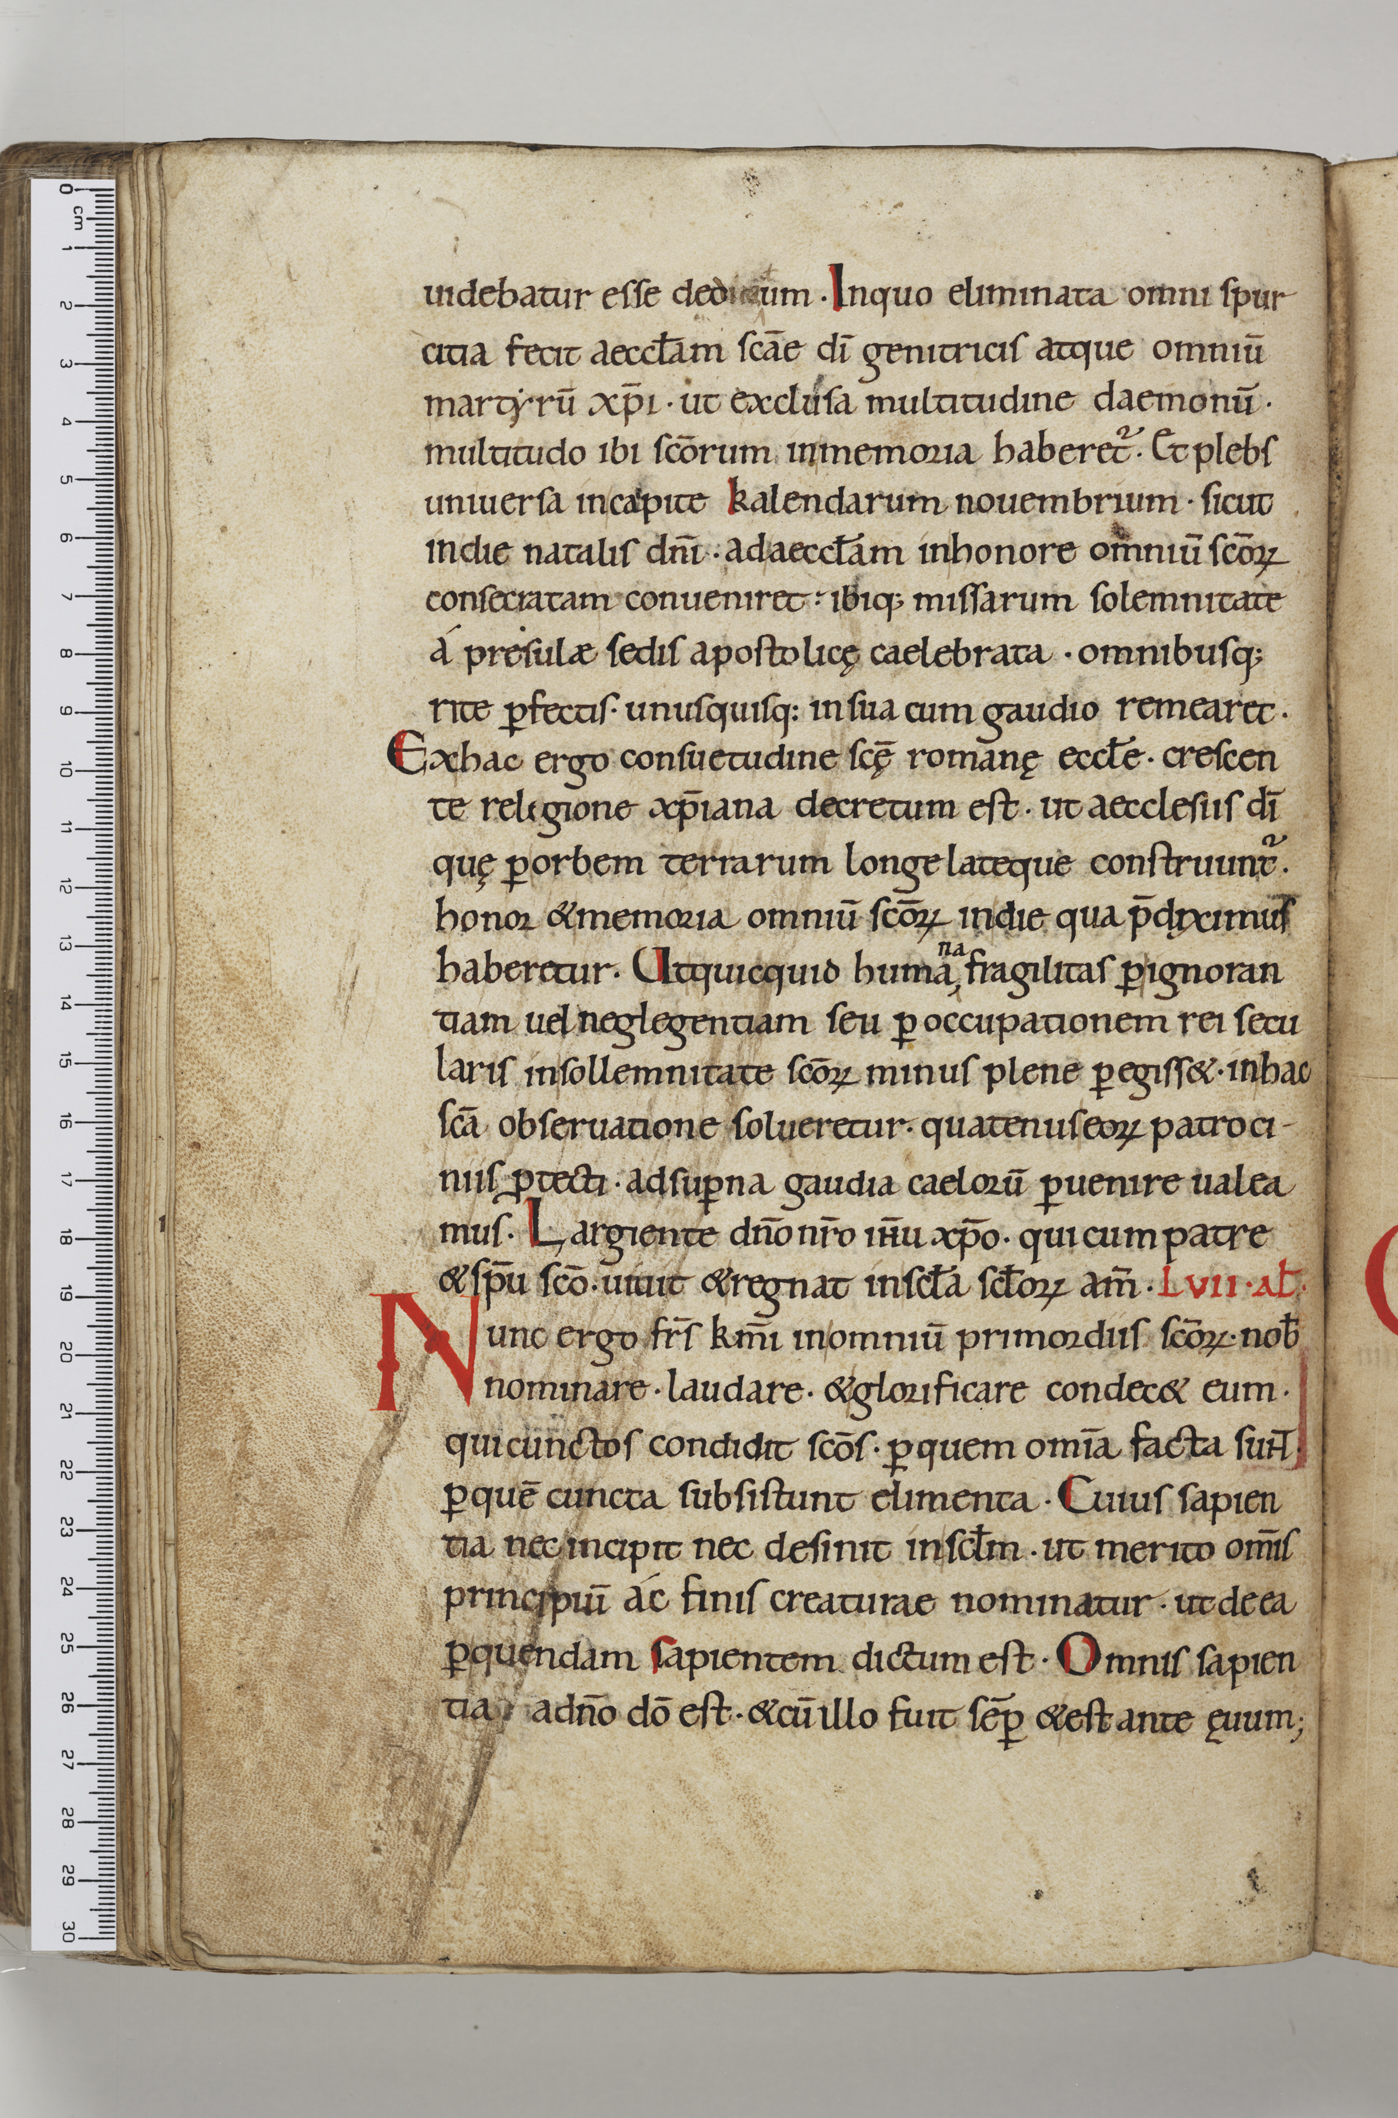 uidebatur esse dedicatum · Inquo eliminata omni spur
citia fecit aeccłam scāe dī genitricis atque omniū
martyrū xp̄i · ut exclusa multitudine daemonū ·
multitudo ibi scōrum inmemoria haberet᷑ · Et plebs
uniuersa incapite kalendarum nouembrium · sicut
indie natalis dnī · adaeccłam inhonore omniū scōꝝ
consecratam conueniret · ibiq; missarum solemnitate
á presulæ sedis apostolicę caelebrata · omnibusq;
rite ꝑfectis · unusquisq: insua cum gaudio remearet ·
Exhac ergo consuetudine scę̄ romanę eccłe · crescen
te religione xp̄iana decretum est · ut aecclesiis dī
quę ꝑorbem terrarum longe lateque construunt᷑ ·
honor &memoria omniū scōꝝ indie qua p̄diximus
haberetur · Utquicquid humana fragilitas ꝑignoran
tiam uel neglegentiam seu ꝑ occupationem rei secu
laris insollemnitate scōꝝ minus plene ꝑegiss& · inhac
scā obseruatione solueretur · quatenus eoꝝ patroci-
niis ꝓtecti · adsuꝑna gaudia caelorū ꝑuenire ualea
mus · Largiente dn̄o nr̄o ih̄u xp̄o · qui cum patre
&sp̄u scō · uiuit &regnat inscła scłoꝝ am̄ · LVII · ał ·
Nunc ergo fr̄s km̄i inomniū primordiis scōꝝ · nob̄
nominare · laudare · &glorificare condec& eum ·
qui cunctos condidit scōs · ꝑquem om̄ia facta sun̄t ·
ꝑquē cuncta subsistunt elimenta · Cuius sapien
tia nec incipit nec desinit inscłm · ut merito om̄is
principiū ác finis creaturae nominatur · ut de ea
ꝑquendam sapientem dictum est · Omnis sapien
tia adn̄o dō est · &cū illo fuit sēꝑ &est ante ęuum;